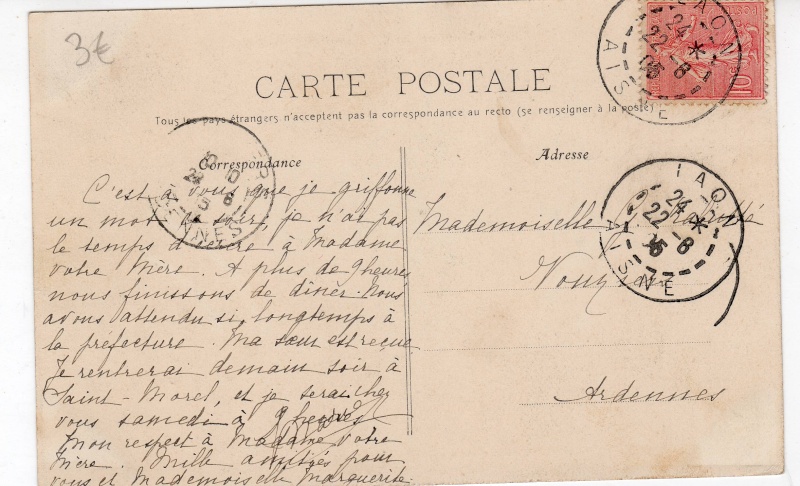 3€
CARTE POSTALE
Tous les pays étrangers n'acceptent pas la correspondance au recto (se renseigner à la poste)
Correspondance
C'est à vous que je griffonne
un mot ce soir, je n'ai pas
le temps d'écrire à Madame
votre Mère. A plus de 9 heures
nous finissons de dîner. Nous
avons attendu si longtemps à
la préfecture. Ma sœur est reçue
Je rentrerai demain soir à
Saint-Morel, et je serai chez
vous samedi à 9 heures
Mon respect à Madame votre
Mère. Mille amitiés pour
vous et Mademoiselle Marguerite.
Adresse
Mademoiselle
Nouzon
Ardennes
LAON
24
22-8
05
AISNE
LAON
24
22-8
05
AISNE
ARDENNES
10